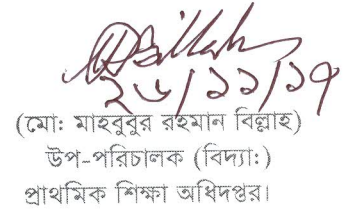 ২৬/১১/১৭
(মো: মাহবুবুর রহমান বিল্লাহ)
উপ-পরিচালক (বিদ্যা:)
প্রাথমিক শিক্ষা অধিদপ্তর।